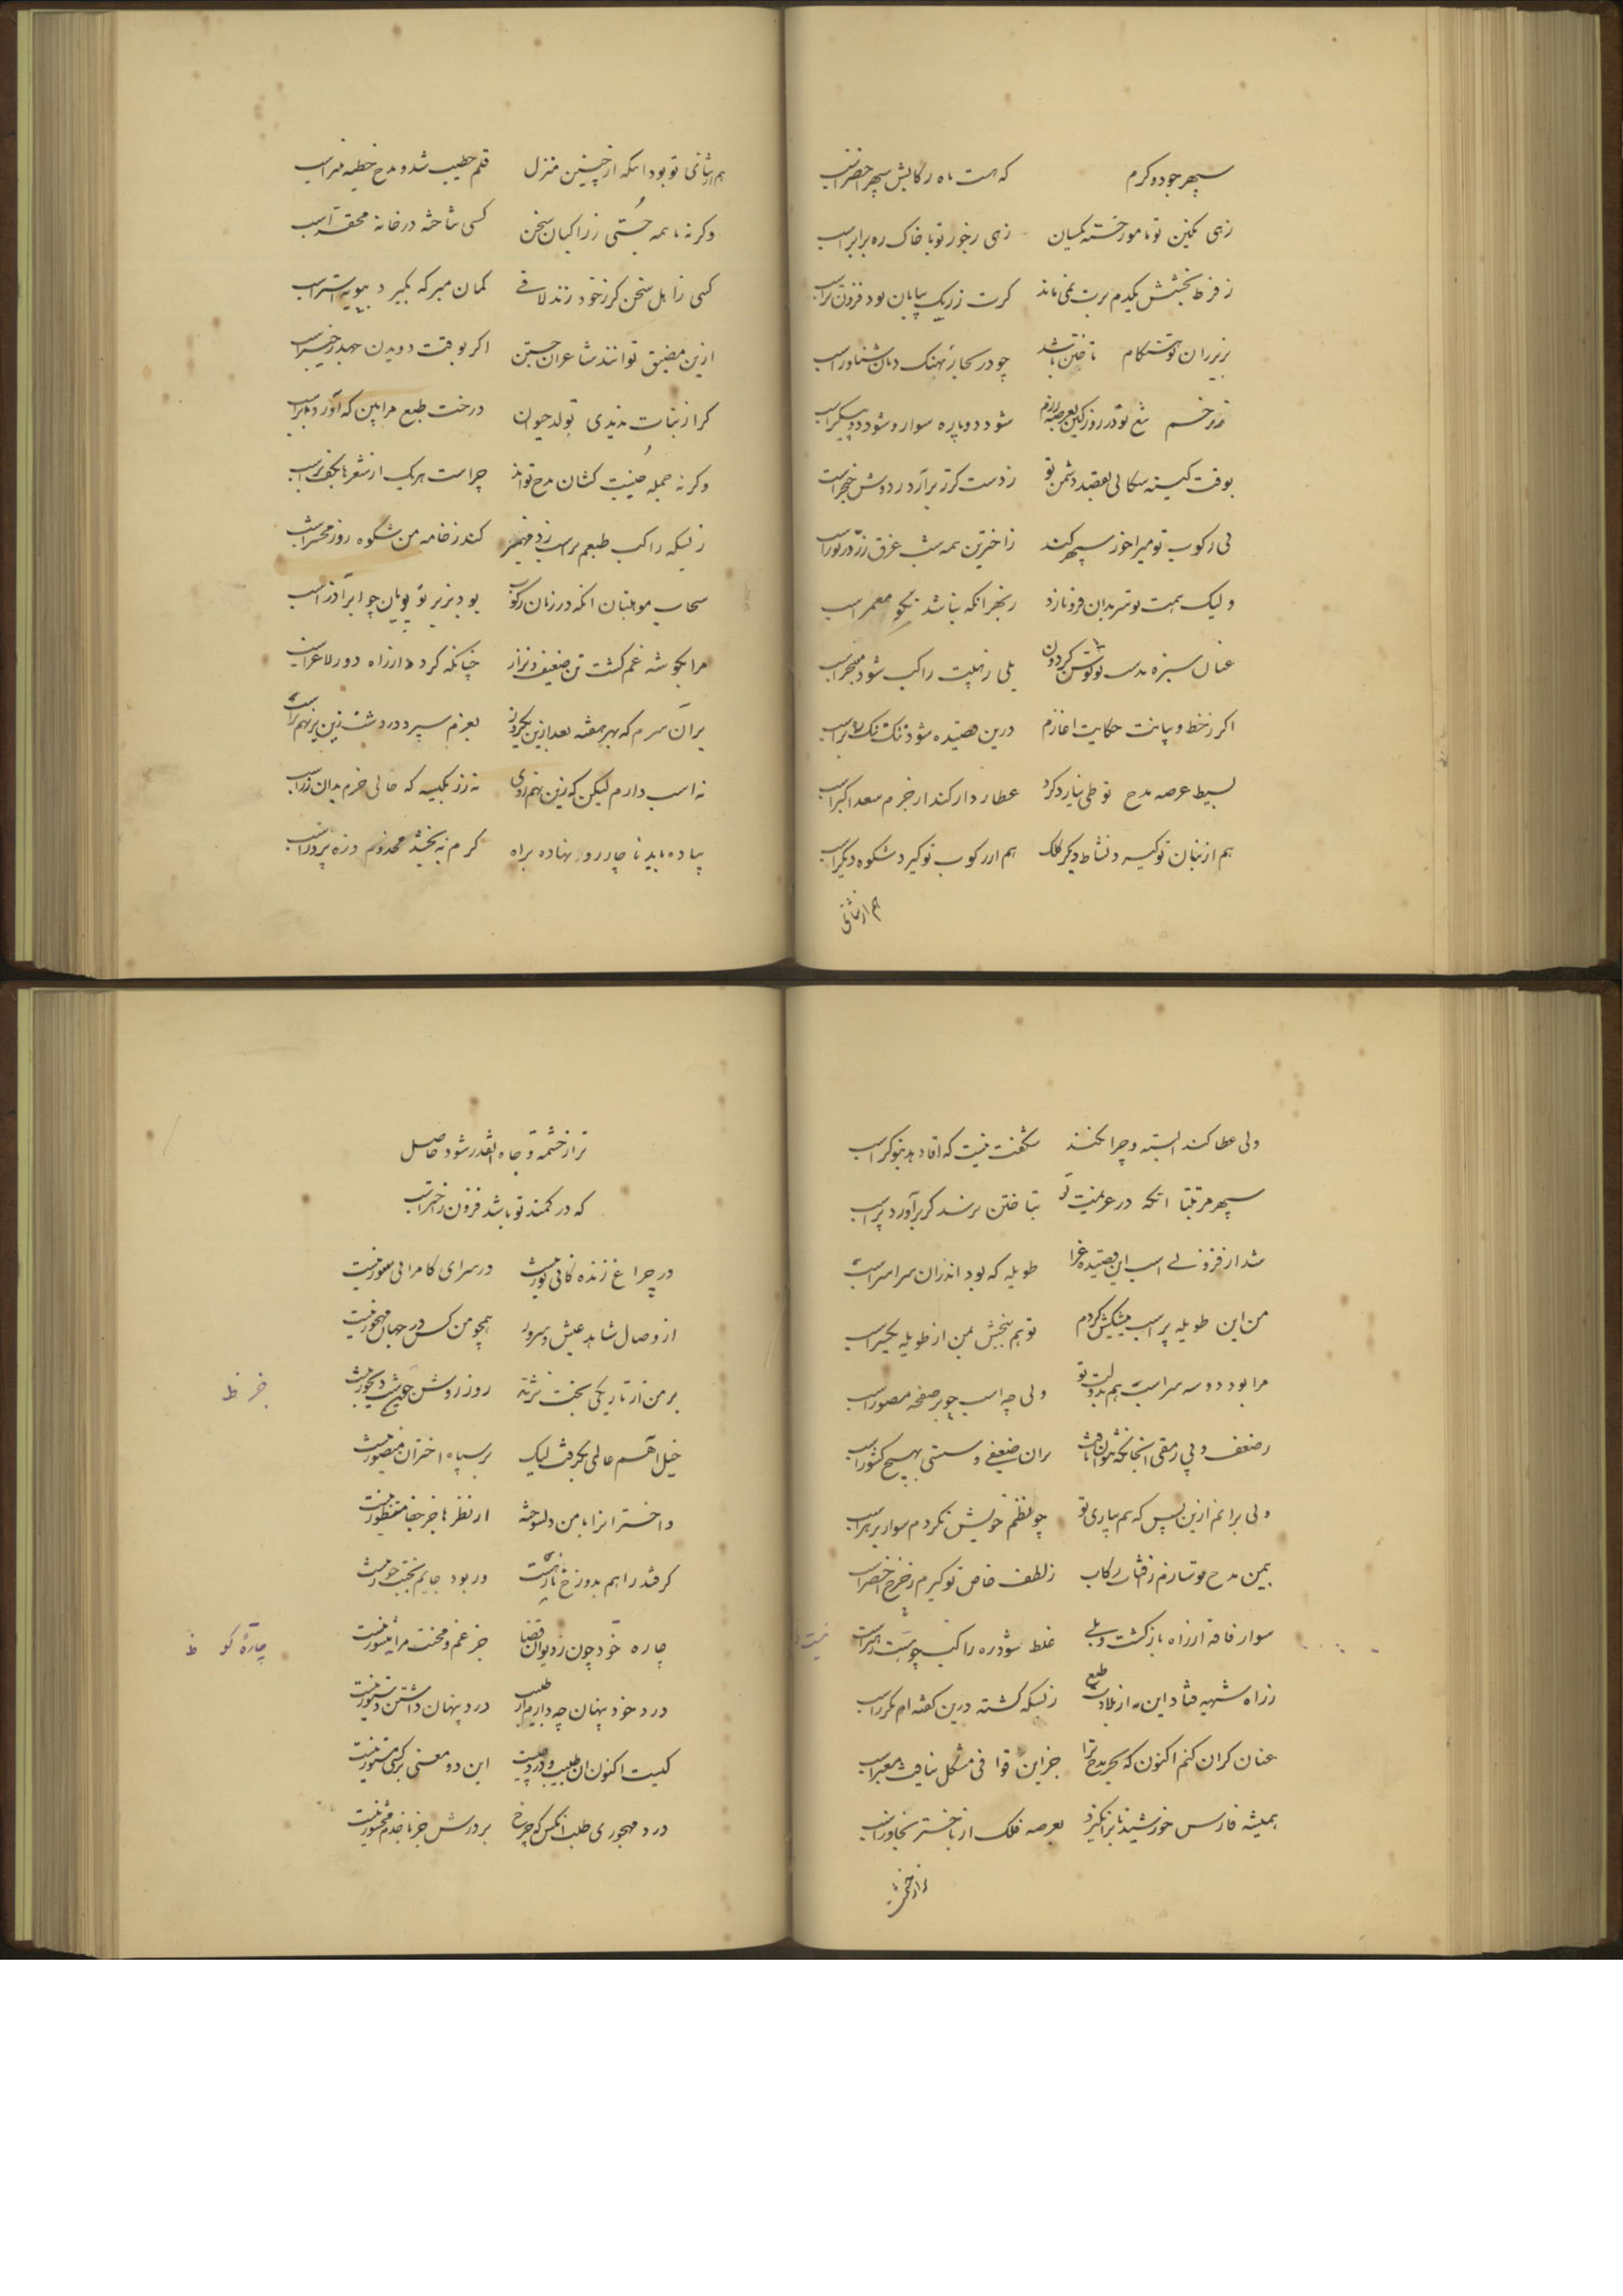 سپهر جود و کرم که هست ماه رکابش سپهر اخضر اسب
زهی تو با مور خسته یکسان زهی تو با خاک ره برابر اسب
ز فرط بخشش یکدم برت نمی ماند کرت ز ریک بیابان بود فزونتر اسب
بزیر ران تو هنکام تاختن باشد چو در بحار نهنک دمان شناور اسب
ز زخم تیغ تو در روز کین بعرصه رزم شود دوپاره سوار و شود دو پیکر اسب
بوقت کینه سکالی بقصد دشمن تو ز دست کرز برآرد ز دوش خنجر اسب
پی رکوب تو میراخور سپهر کند ز اختران همه شب غرق زر و زیور اسب
ولیک همت تو سر بدان فرو نارد ز بهر انکه نباشد نکو معمر اسب
عنان سبزه بدست تو توسن کردون بلی ز هیبت راکب شود مسخر اسب
اکر ز خط و بیانت حکایت اغازم درین قصیده شود تنک تنک شکر اسب
بسیط عرصه مدح تو طی نیارد کرد عطارد ار کند از جرم سعد اکبر اسب
هم از بنان تو کیرد نشاط دیکر کلک هم از رکوب تو کیرد شکوه دیکر اسب
هم از ثنای
هم از ثنای تو بود اینکه از چنین منزل قلم خطیب شد و مدح خطبه منبر اسب
وکرنه با همه جستی ز راکبان سخن کسی نتاخته در خانه محقر اسب
کسی ز اهل سخن کر ز خود زند لافی کمان مبر که بکیرد بپویه استر اسب
ازین مضیق توانند شاعران جستن اکر بوقت دویدن جهد ز چنبر اسب
کر از نبات ندیدی تولد حیوان درخت طبع مرا بین که آورد بر اسب
وکرنه جمله جنیبت کشان مدح تواند چراست هریک از شعرها بکف بر اسب
ز بسکه راکب طبعم براسب زد مهمیز کند ز خامه من شکوه روز محشر اسب
سحاب موهبتا آنکه در زمان رکوب بود بزیر تو پویان چو ابر آذر اسب
مرا بکوشه غم کشت تن ضعیف و نزار چنانکه کردد از راه دور لاغر اسب
برآن سرم که بهر هفته بعد ازین یکروز بعزم سیر در دشت زین نهم بر اسب
نه اسب دارم لیکن که زین نهم روی نه زر بکیسه که حالی خرم بدان زر اسب
پیاده باید ناچار رو نهاده براه کرم نه بخشد مخدوم ذره پرور اسب
ولی عطا کند البته و چرا نکند شکفت نیست که آقا دهد بنوکر اسب
سپهر مرتبتا انکه در عزیمت تو بتاختن نرسد کر برآورد پر اسب
شد از فزونی اسب این قصیده غرا طویله که بود اندران سراسر اسب
من این طویله پر اسب پیشکش کردم تو هم ببخش بمن از طویله یکسر اسب
مرا بود دو سه سر اسب هم بدولت تو ولی چه اسب چو بر صفحه مصور اسب
ز ضعف و بی رمقی انچنانکه نتوان یافت بدان ضعیفی و سستی بهیچ کشور اسب
ولی برانم ازین پس که هم بیاری تو چو نظم خویش نکردم سوار بر هر اسب
بیمن مدح تو سازم ز افتاب رکاب ز لطف خاص تو کیرم ز چرخ اخضر اسب
سوار قافیه از راه بازکشت ولی غلط شود ره راکب چو هست رهبر اسب
ز راه شبهه فتاد این نه از بلادت طبع ز بسکه کشته درین کفته ام مکرر اسب
عنان کران کنم اکنون که بحر مدح ترا جز این قوافی مشکل نیافت معبر اسب
همیشه فارس خورشید تا برانکیزد بعرصه فلک از باختر بخاور اسب
ترا ز حشمت
ترا ز حشمت و جاه انقدر شود حاصل
که در کمند تو باشد فزون ز اختر اسب
در چراغ زندکانی نور نیست در سرای کامرانی سور نیست
از وصال شاهد عیش و سرور همچو من کس در جهان مهجور نیست
بر من از تاریکی بخت نژند روز روشن جز شب دیجور نیست
جز ظ
خیل آهم عالمی بکرفت لیک بر سپاه اختران منصور نیست
واختران را با من دلسوخته از نظرها جز جفا منظور نیست
کر فتد راهم بدوزخ نار نیست ور بود جایم بجنت حور نیست
چاره خود چون ز دیوان قضا جز غم و محنت مرا منشور نیست
چارهٔ کو ظ
درد خود پنهان چه دارم از طبیب درد پنهان داشتن دستور نیست
کیست اکنون ان طبیب و درد چیست این دو معنی بر کسی مستور نیست
درد مهجوری طلب انکس که چرخ بر درش جز خادم مجبور نیست